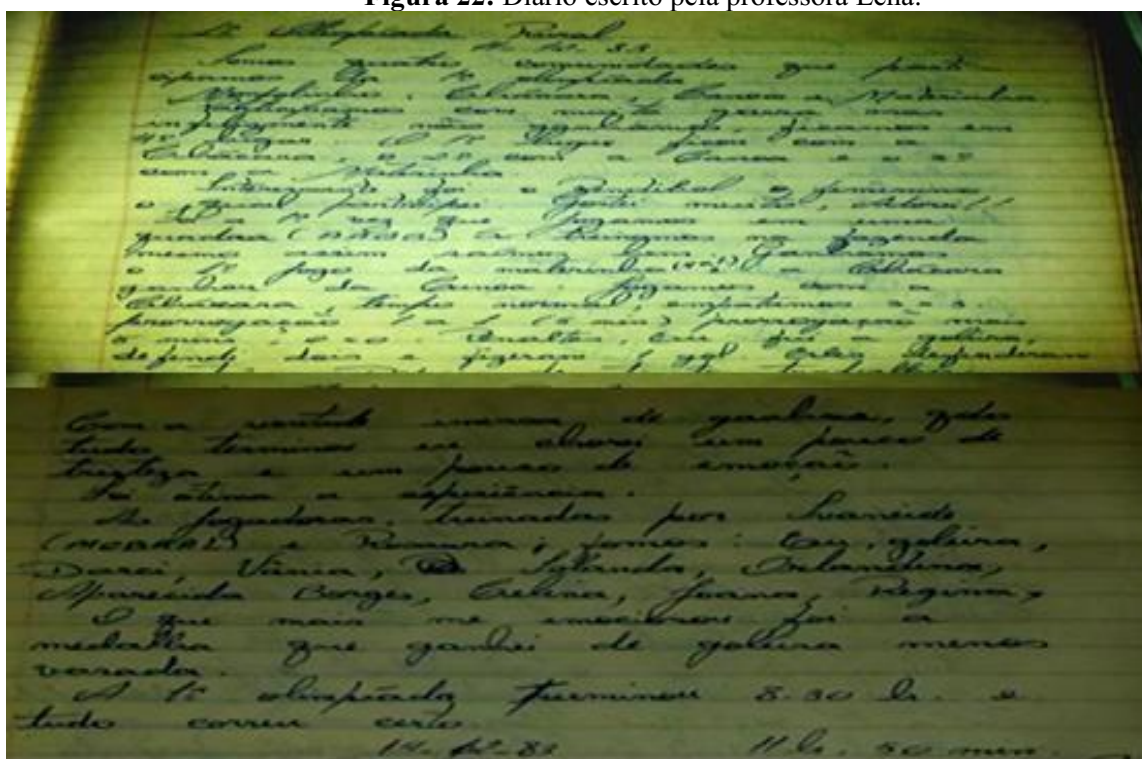 Figura 22: Diário escrito pela professora Lena.
1ª Olimpíada Rural
Somos quatro comunidades que parti
cipamos da 1ª olimpíada
Chácara, Canoa e Matrinha.
com muita garra mas
infelizmente não ganhamos, ficamos em
4º lugar. O 1º lugar ficou com a
Chácara, o 2º com a Canoa e o 3º
com a Matrinha
foi o handibol feminino
o qual participei Gostei muito, adorei!!
a 1ª vez que jogamos em uma
quadra na fazenda
mesmo assim saímos bem Ganhamos
o 1º jogo da matrinha a Chácara
ganhou da Canoa. Jogamos com a
Chácara, tempo normal, empatamos 3 a 3.
prorrogação 1 a 1 (5 min) prorrogação mais
5 min: 0 x 0. eu fui a goleira,
defendi dois e fizeram 1 gol eles defenderam
Com a vontade imensa de ganharmos, qdo
tudo terminou eu chorei um pouco de
tristeza e um pouco de emoção.
Foi ótima a experiência.
As jogadoras, treinadas por
(MOBRAL) e fomos: Eu, goleira,
Darci, Vânia, Iolanda, Orlandina,
Aparecida Borges, Joana, Regina,
O que mais me emocionou foi a
medalha que ganhei de goleira menos
vasada.
A 1ª olimpíada terminou 8:30 h. e
tudo correu certo.
14-12-83 11 h. 50 min.